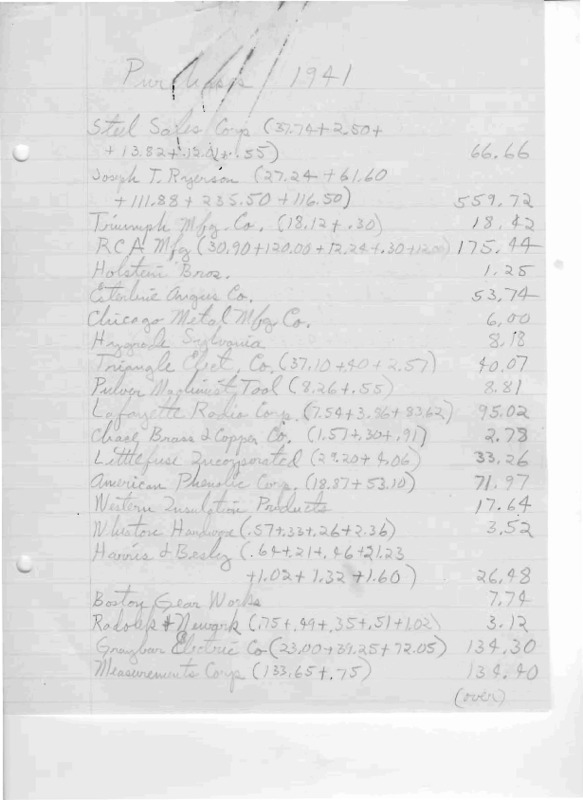 Purchases 1941
Steel Sales Corp (37.74+2.50+
+13.82+12.01+.55) 66.66
Joseph T. Ryerson (27.24+61.60
+111.88+235.50+116.50) 559.72
Triumph Mfg. Co. (18.12+.30) 18.42
RCA Mfg (30.90+120.00+12.24+.30+12.00) 175.44
Holstein Bros. 1.25
Esterline Angus Co. 53.74
Chicago Metal Mfg Co. 6.00
Hygrade Sylvania 8.18
Triangle Elect. Co. (37.10+.40+2.57) 40.07
Pulver Machinist Tool (8.26+.55) 8.81
Lafayette Radio Corp. (7.54+3.86+83.62) 95.02
Chase Brass & Copper Co. (1.57+.30+.91) 2.78
Littlefuse Incorporated (29.20+4.06) 33.26
American Phenolic Corp. (18.87+53.10) 71.97
Western Insulation Products 17.64
Hardware (.57+.33+.26+2.36) 3.52
Harris & Besley (.64+.21+.46+21.23
+1.02+1.32+1.60) 26.48
Boston Gear Works 7.74
& Newark (.75+.49+.35+.51+1.02) 3.12
Graybar Electric Co (23.00+39.25+72.05) 134.30
Measurements Corp (133.65+.75) 134.40
(over)